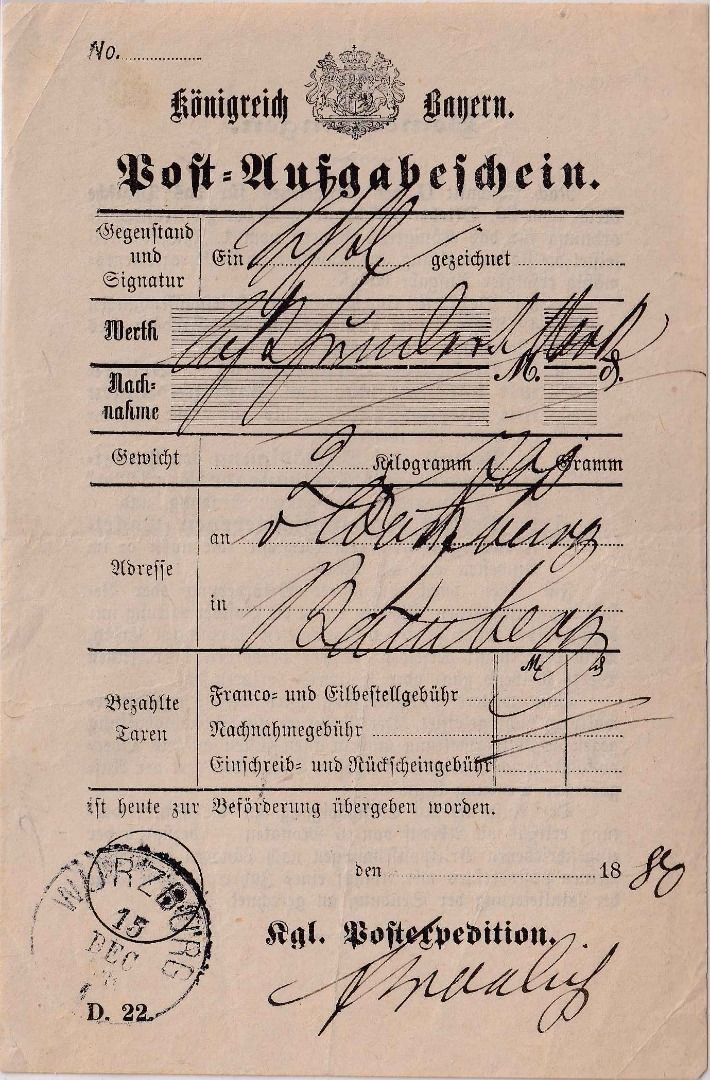 No.
Königreich Bayern.
Post-Aufgabeschein.
Gegenstand und Signatur
Ein gezeichnet
Werth
hundert Mark
M. ₰.
Nach-
nahme
Gewicht 2 Kilogramm Gramm
Adresse
an
in Bamberg
M. ₰
Bezahlte Taxen
Franco- und Eilbestellgebühr
Nachnahmegebühr
Einschreib- und Rückscheingebühr
ist heute zur Beförderung übergeben worden.
den 18 80
WÜRZBURG
15
DEC
Kgl. Postexpedition.
D. 22.